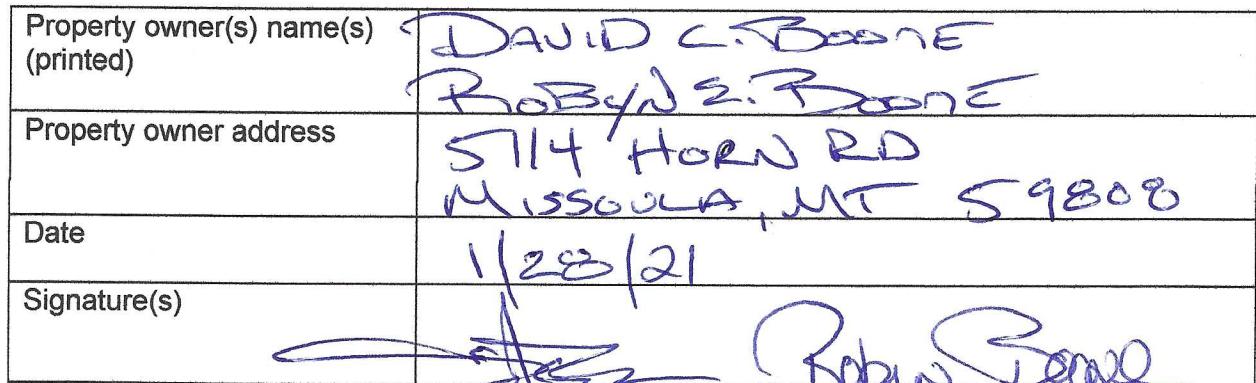 Property owner(s) name(s)
(printed)
DAVID C. BOONE
ROBYN E. BOONE
Property owner address
5714 HORN RD
MISSOULA, MT 59808
Date
1/28/21
Signature(s)
Robyn Boone